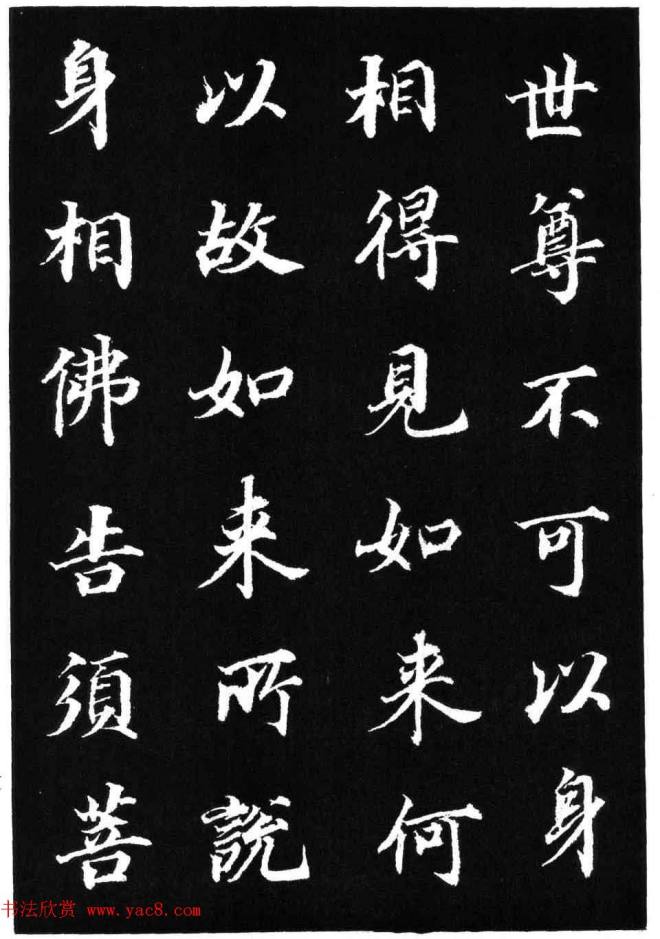 世尊不可以身
相得見如来何
以故如来所說
身相佛告須菩
书法欣赏 www.yac8.com